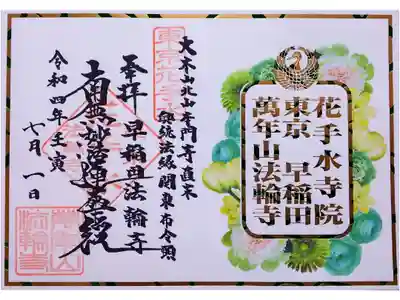 花手水寺院
東京 早稲田
萬年山法輪寺
大本山北山本門寺直末
奉拝 早稲田法輪寺
南無妙法蓮華経
令和四年壬寅
七月一日